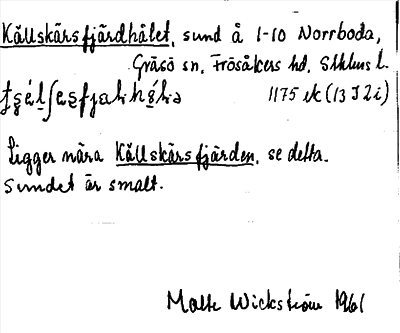 Källskärsfjärdhålet, sund å 1-10 Norrboda,
Gräsö sn, Frösåkers hd, Sthlms l.
1175 ik (13 I 2 i)
Ligger nära Källskärsfjärden, se detta.
Sundet är smalt.
Malte Wickström 1961